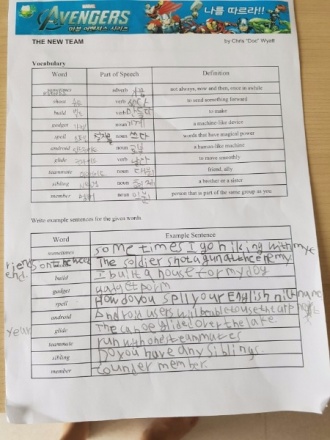 AVENGERS
나를 따르라!!
THE NEW TEAM
by Chris "Doc" Wyatt
Vocabulary
Word Part of Speech Definition
sometimes adverb not always, now and then, once in awhile
shoot verb to send something forward
build verb to make
gadget noun a machine-like device
spell noun 쓰다 words that have magical power
android noun a human-like machine
glide verb 날다 to move smoothly
teammate noun friend, ally
sibling noun a brother or a sister
member noun person that is part of the same group as you
Write example sentences for the given words
Word Example Sentence
sometimes some times I go hiking with my
The soldier shot a gun at the enemy
build I built a house for my dog
gadget gadget
spell How do you spell your English nickname
android Android users will be able to use the
year
glide The canoe glided over the lake.
teammate run with one teammates
sibling Do you have any siblings
member counder member.